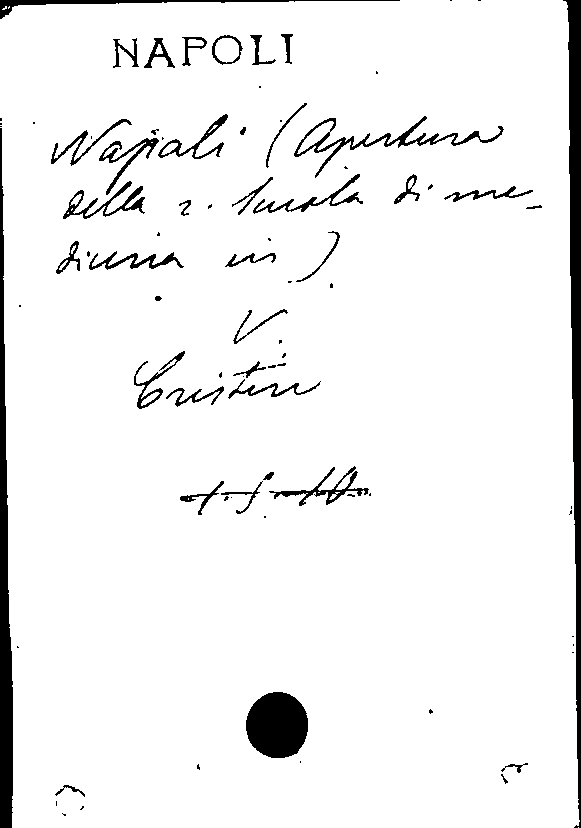 NAPOLI
Napoli (Apertura
della r. Scuola di me-
dicina in).
V.
Cristin